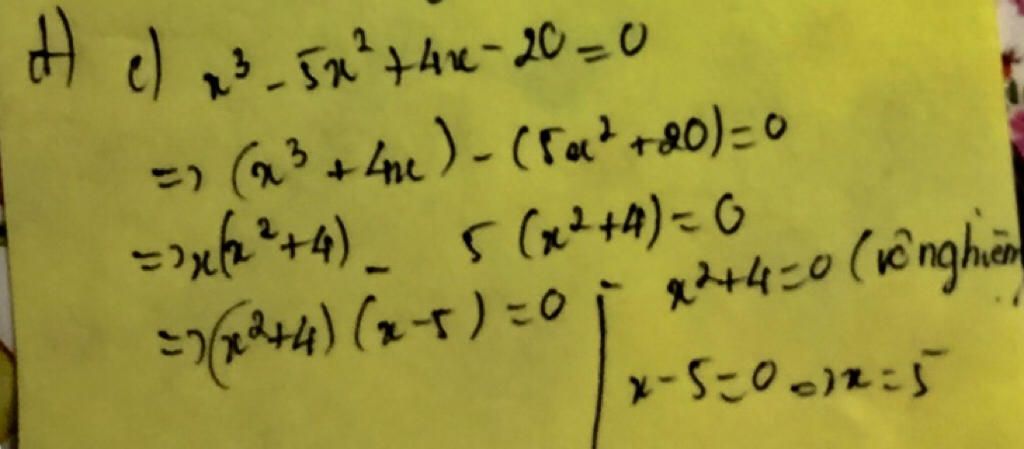 d) e) x³ - 5x² + 4x - 20 = 0
=> (x³ + 4x) - (5x² + 20) = 0
=> x(x² + 4) - 5 (x² + 4) = 0
=> (x² + 4) (x - 5) = 0
x² + 4 = 0 (vô nghiệm
x - 5 = 0 => x = 5